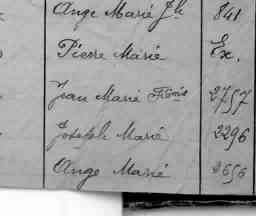 Ange Marie Jh 841
Pierre Marie Ex.
Jean Marie Frçois 2757
Joseph Marie 2296
Ange Marie 2656